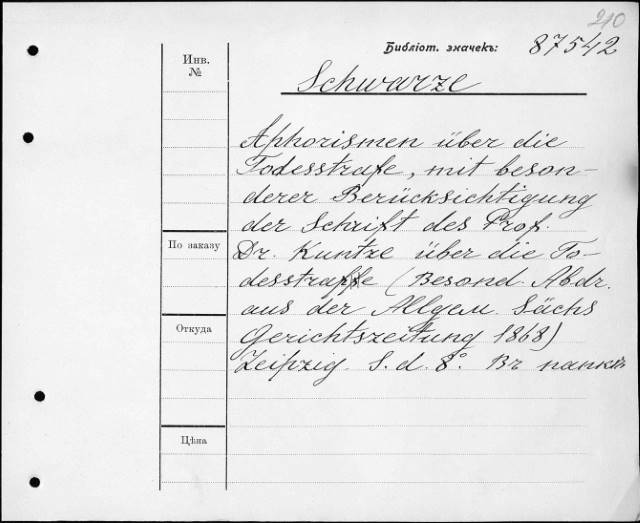 210
Библіот. значекъ: 87542
Инв.
№
Schwarze
Aphorismen über die
Todesstrafe, mit beson-
derer Berücksichtigung
der Schrift des Prof.
По заказу
Dr. Kuntze über die To-
desstraffe (Besond. Abdr.
aus der Allgem. Sächs
Откуда
Gerichtszeitung 1868)
Leipzig. S. d. 8°. Br
Цѣна